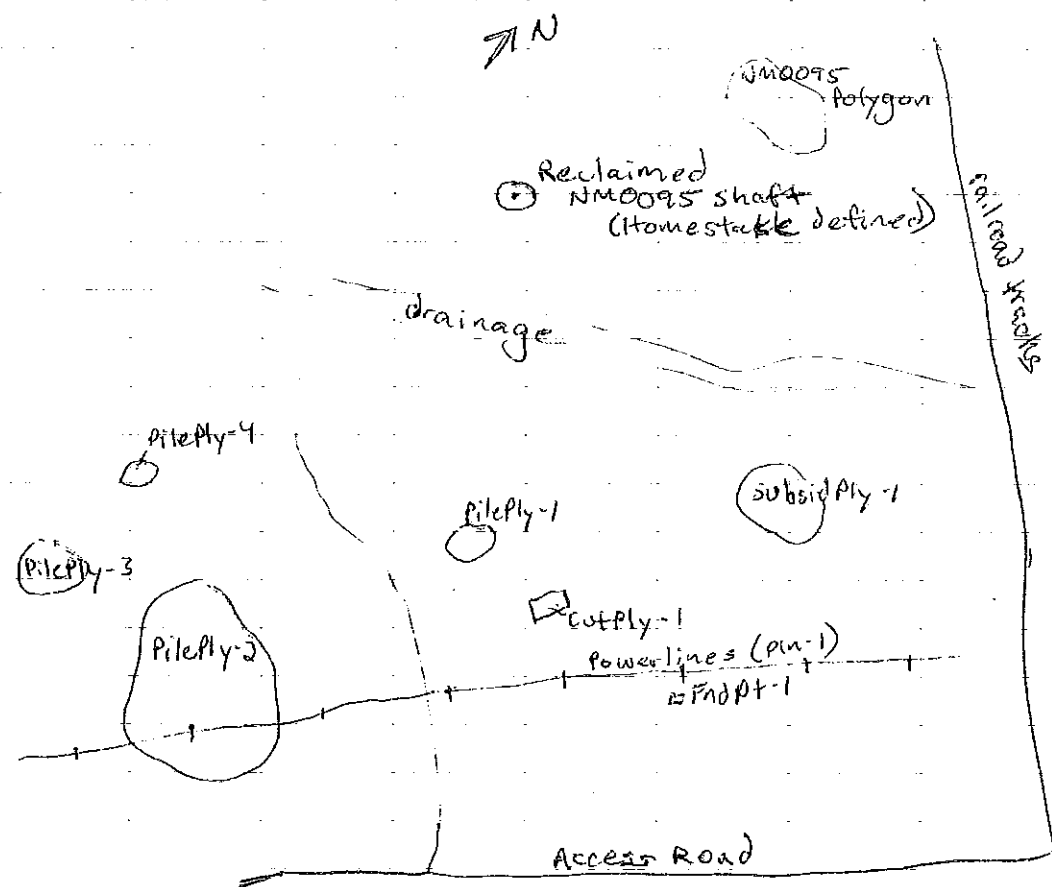 N
NM0095
Polygon
Reclaimed
NM0095 shaft
(Homestake defined)
railroad tracks
drainage
PilePly-4
PilePly-1
SubsidPly-1
PilePly-3
CutPly-1
PilePly-2
Powerlines (pln-1)
FndPt-1
Access Road